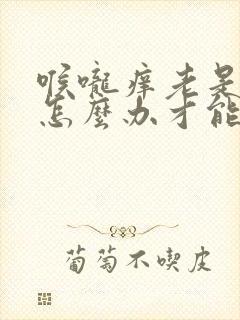 喉嚨痒老是
怎麼办才能
葡萄不喫皮